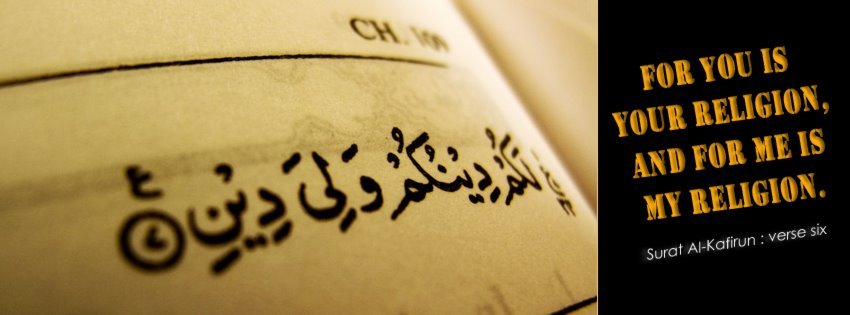 CH. 109
لَكُمْ دِيْنُكُمْ وَلِيَ دِيْنِ ۝٦
ع
FOR YOU IS
YOUR RELIGION,
AND FOR ME IS
MY RELIGION.
Surat Al-Kafirun : verse six